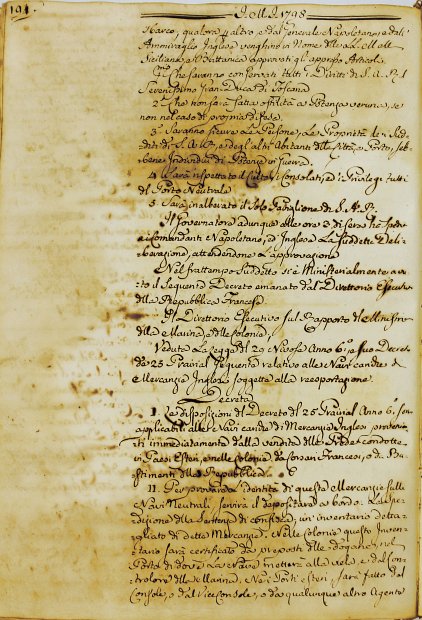 191.
Dell' 1798
Marco, qualora altro, e dal Generale Napoletano, e dall'
Ammiraglio Inglese venghino in Nome delle LL.MM.
Siciliana, e Brittanica approvati gli apposti Articoli
1.mo Che saranno conservati tutti i Diritti di S. A. R. il
Serenissimo Gran-Duca di Toscana
2. Che non sarà fatta ostilità a Potenza veruna, se
non nel caso di propria difesa.
3. Saranno sicure Le Persone, e Le Proprietà dei Sud-
diti di S. A. R., e degl'altri Abitanti della Città, e Porto, seb-
bene Individui di Potenze in Guerra.
4. Sarà rispettato il Culto, i Consolati, ed i Privilegi tutti
del Porto Neutrale
5. Sarà inalberato il solo Paviglione di S. A. R.
Il Governatore adunque alle ore 3 di sera
ai Comandanti Napoletano, ed Inglese La suddetta Deli-
berazione, attendendone L'approvazione
Nel frattempo suddetto si è Ministerialmente avu-
to il seguente Decreto emanato dal Direttorio Esecutivo
della Repubblica Francese.
Il Direttorio Esecutivo sul Rapporto del Ministro
della Marina, e delle Colonie,
Veduta La Legge del 29 Nivose Anno 6.° e suo Decreto
de 25 Prairial seguente relativo alle Navi cariche di
Mercanzie Inglesi soggette alla reesportazione.
Decreta
I. Le disposizioni del Decreto del 25 Prairial Anno 6.° son
applicabili alle Navi cariche di Mercanzie Inglesi
immediatamente dalla vendita delle Prede condotte
in Paesi Esteri, e nelle Colonie da Corsari Francesi, o da Ba-
stimenti della Repubblica.
II. Per provare l'identità di queste Mercanzie sulle
Navi Neutrali, servirà il depositare a bordo La spe-
dizione della sentenza di confisca, un'inventario detta-
gliato di dette Mercanzie. Nelle Colonie questo Inven-
tario sarà certificato da preposti delle dogane, nel
Porto di dove La Nave metterà alla vela, e dal Con-
trolore della Marina. Nei Porti esteri, sarà fatto dal
Console, o dal ViceConsole, o da qualunque altro Agente